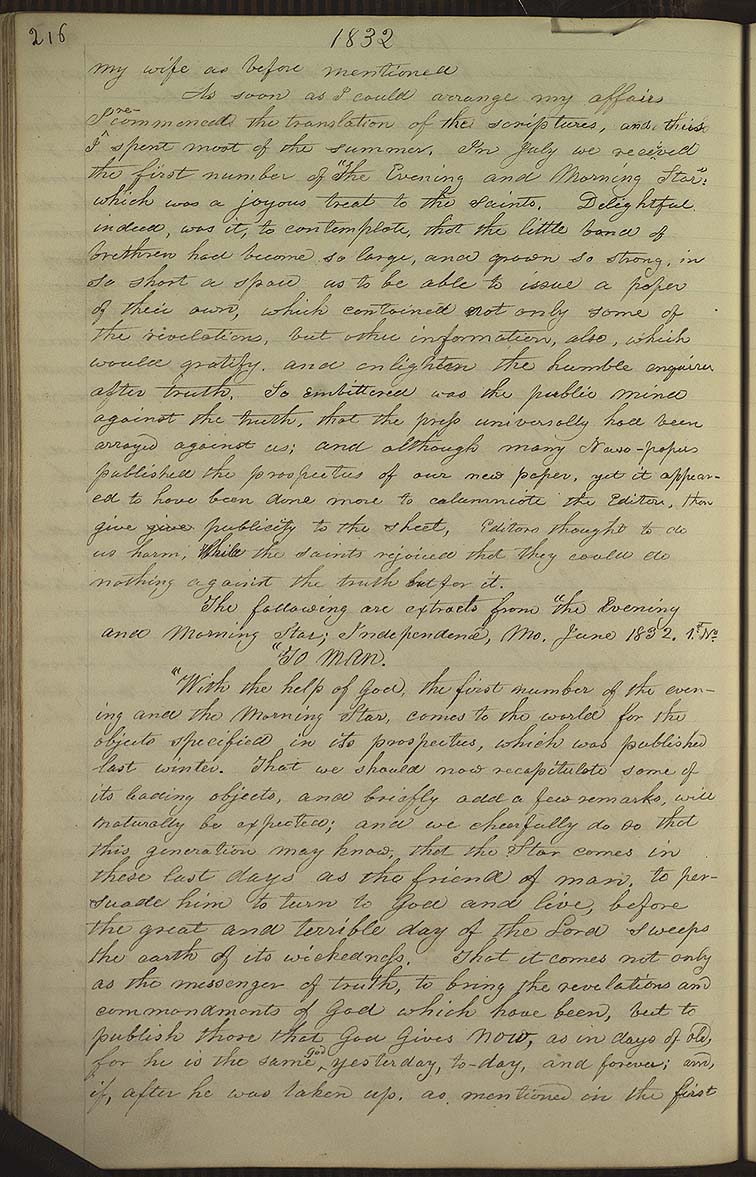 216
1832
my wife as before mentioned
As soon as I could arrange my affairs
I re-commenced the translation of the scriptures, and thus
I spent most of the summer. In July we received
the first number of "The Evening and Morning Star":
which was a joyous treat to the saints. Delightful
indeed, was it, to contemplate, that the little band of
brethren had become so large, and grown so strong, in
so short a space as to be able to issue a paper
of their own, which contained not only some of
the revelations, but other information, also, which
would gratify, and enlighten the humble enquirer
after truth. So embittered was the public mind
against the truth, that the press universally had been
arrayed against us; and although many News-papers
published the prospectus of our new paper, yet it appear-
ed to have been done more to calumniate the Editor, than
give give publicity to the sheet, Editors thought to do
us harm, While the saints rejoiced that they could do
nothing against the truth but for it.
The following are extracts from "the Evening
and Morning Star; Independence, Mo. June 1832. 1st No
"To Man.
"With the help of God, the first number of the even-
ing and the Morning Star, comes to the world for the
objects specified in its prospectus, which was published
last winter. That we should now recapitulate some of
its leading objects, and briefly add a few remarks, will
naturally be expected; and we cheerfully do so that
this generation may know, that the Star comes in
these last days as the friend of man, to per-
suade him to turn to God and live, before
the great and terrible day of the Lord sweeps
the earth of its wickedness. That it comes not only
as the messenger of truth, to bring the revelations and
commandments of God which have been, but to
publish those that God gives NOW, as in days of old,
for he is the same God, yesterday, to-day, and forever; and,
if, after he was taken up, as mentioned in the first